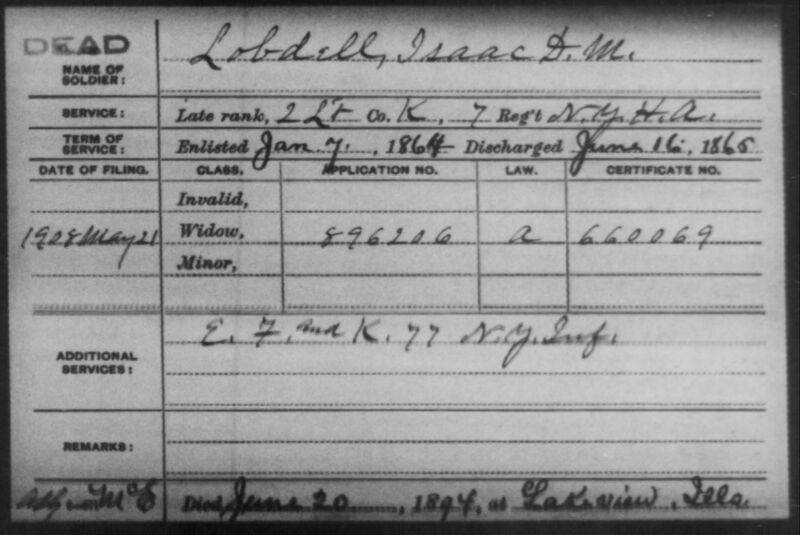 DEAD
NAME OF SOLDIER: Lobdell, Isaac D. M.
SERVICE: Late rank, 2 Lt Co. K, 7 Reg't N.Y.H.A.
TERM OF SERVICE: Enlisted Jan 7, 1864 Discharged June 16, 1865
DATE OF FILING. CLASS. APPLICATION NO. LAW. CERTIFICATE NO.
Invalid,
1908 May 21 Widow, 896206 A 660069
Minor,
ADDITIONAL SERVICES: E. F. and K. 77 N.Y. Inf.
REMARKS:
Died June 20, 1894, at Lakeview, Ills.